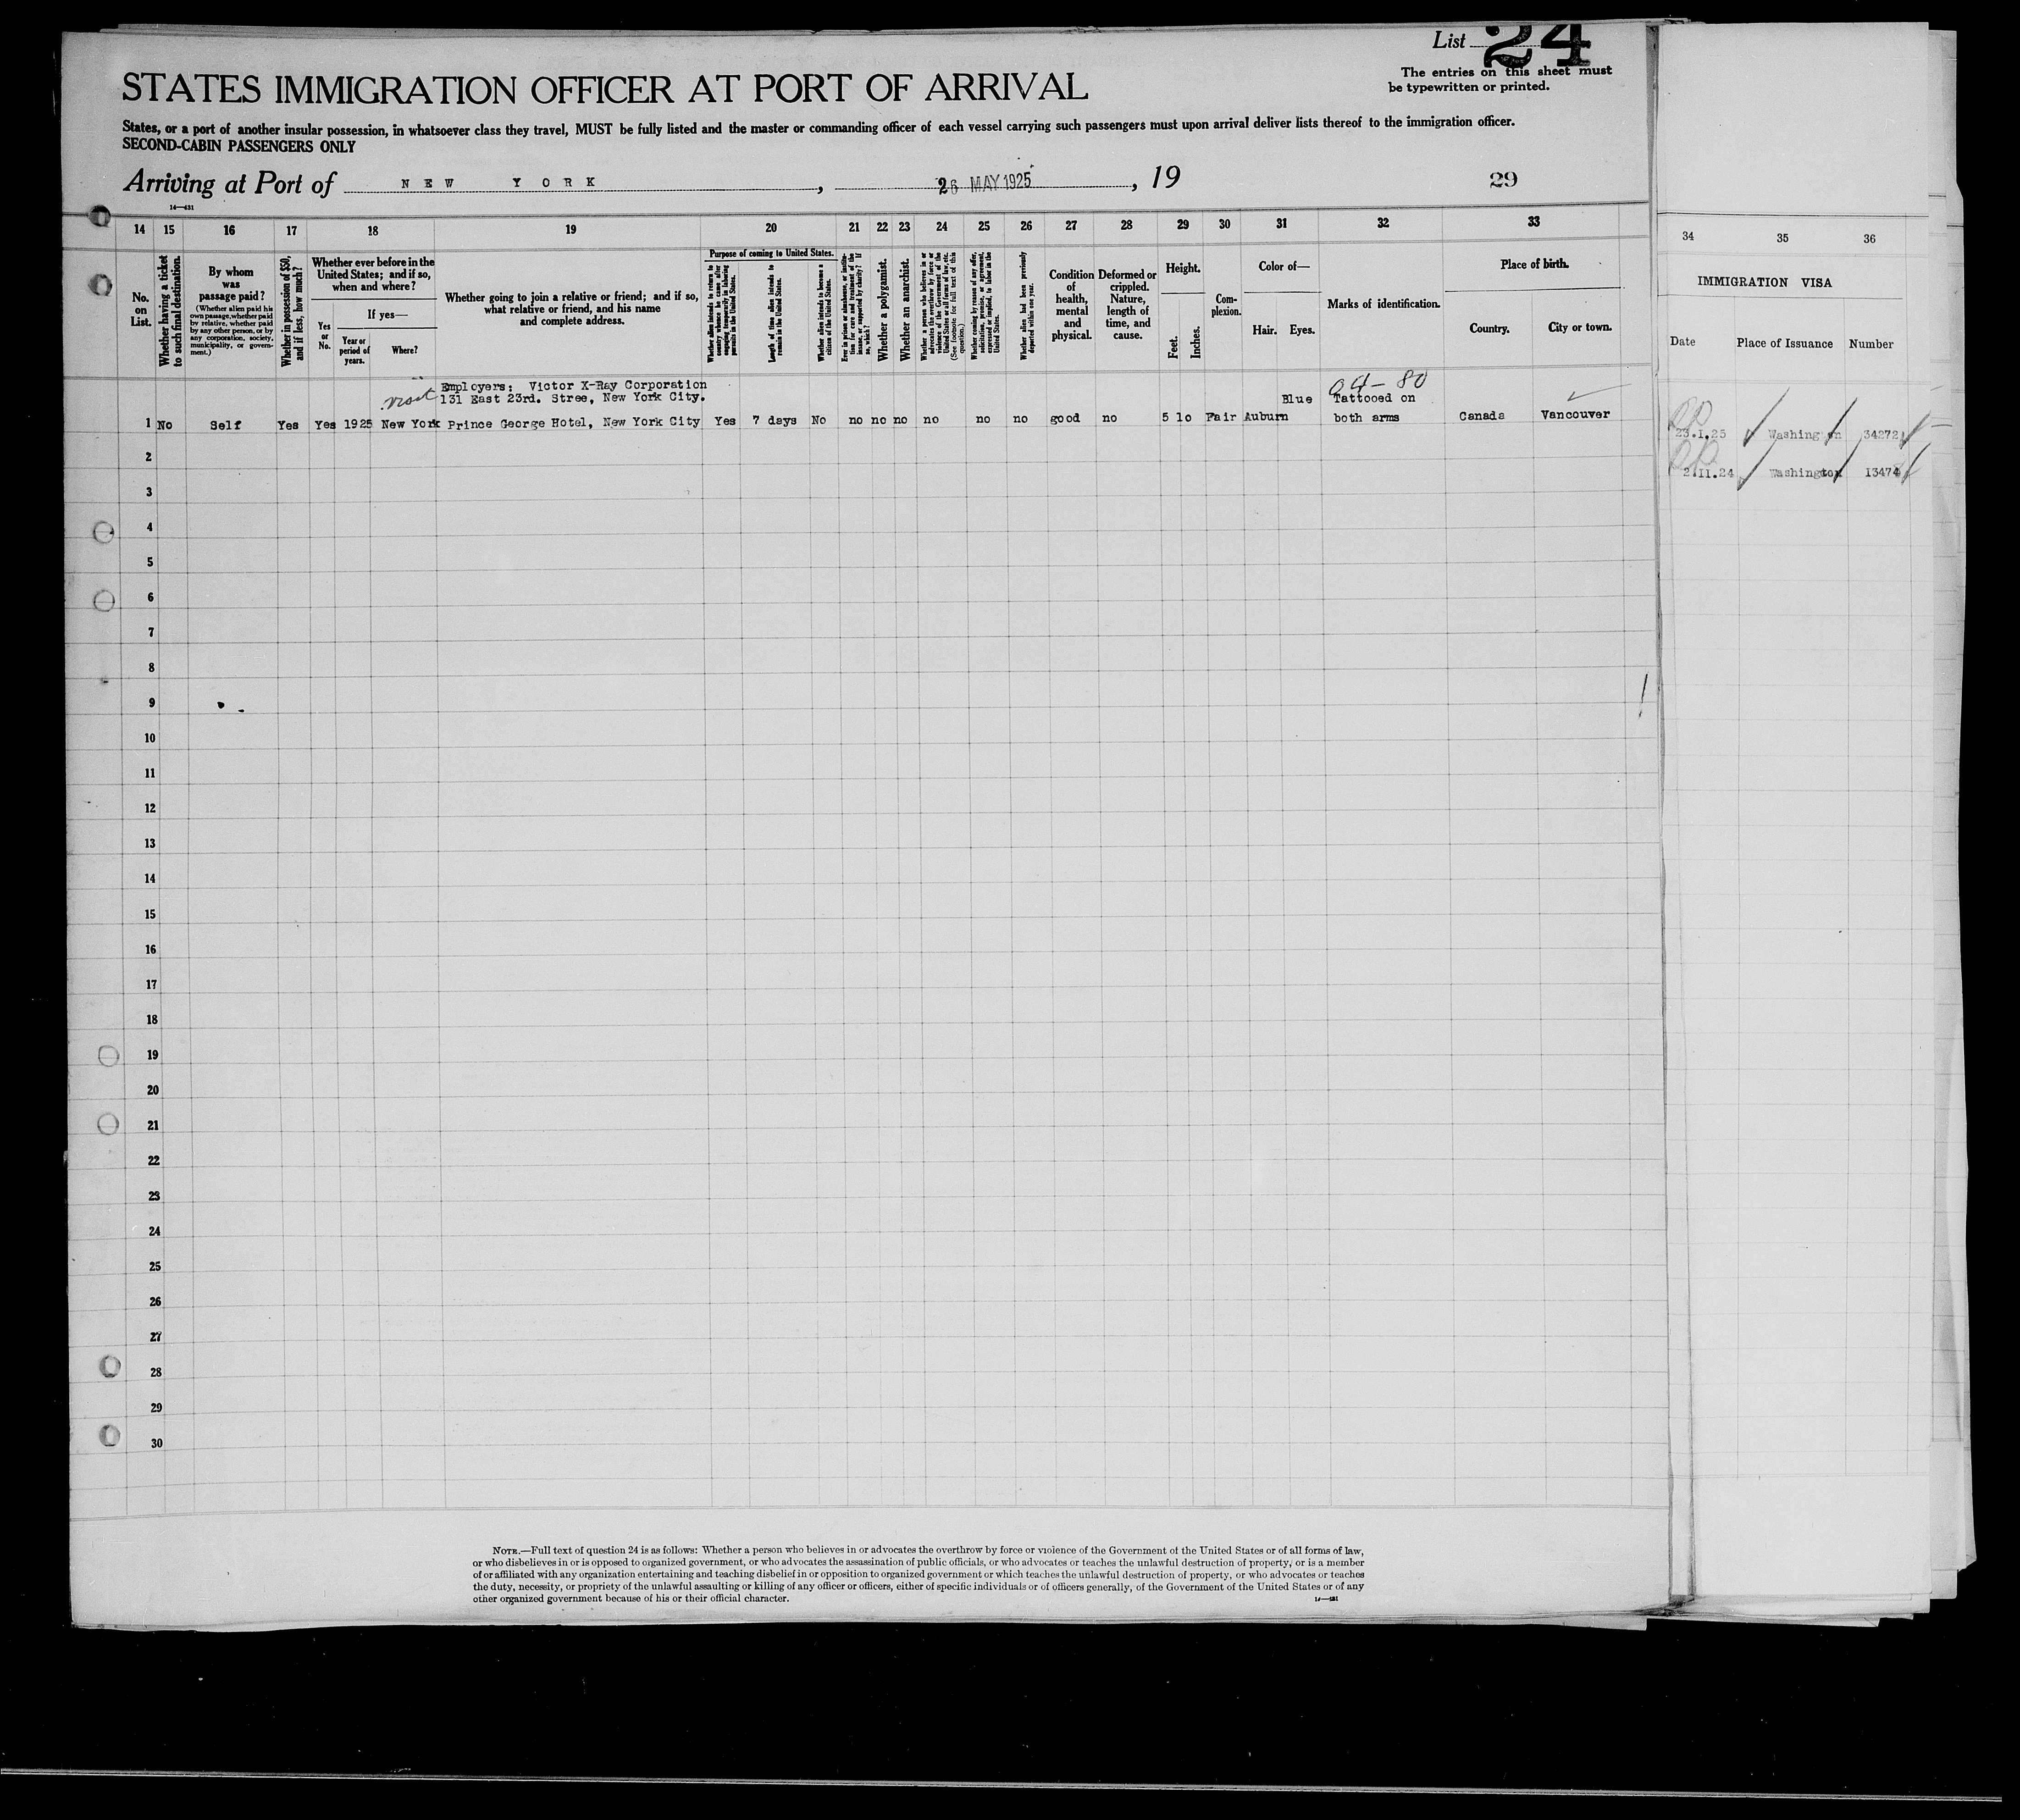 List 24
The entries on this sheet must
be typewritten or printed.
STATES IMMIGRATION OFFICER AT PORT OF ARRIVAL
States, or a port of another insular possession, in whatsoever class they travel, MUST be fully listed and the master or commanding officer of each vessel carrying such passengers must upon arrival deliver lists thereof to the immigration officer.
SECOND-CABIN PASSENGERS ONLY
Arriving at Port of NEW YORK, 26 MAY 1925, 19 29
14 15 16 17 18 19 20 21 22 23 24 25 26 27 28 29 30 31 32 33 34 35 36
No. on List.
Whether having a ticket to such final destination.
By whom was passage paid?
(Whether alien paid his own passage, whether paid by relative, whether paid by any other person, or by any corporation, society, municipality, or government.)
Whether in possession of $50, and if less, how much?
Whether ever before in the United States; and if so, when and where?
Yes or No.
If yes—
Year or period of years.
Where?
Whether going to join a relative or friend; and if so, what relative or friend, and his name and complete address.
Purpose of coming to United States.
Whether alien intends to return to country whence he came after engaging temporarily in laboring pursuits in the United States.
Length of time alien intends to remain in the United States.
Whether alien intends to become a citizen of the United States.
Ever in prison or almshouse, or institution for care and treatment of the insane, or supported by charity? If so, which?
Whether a polygamist.
Whether an anarchist.
Whether a person who believes in or advocates the overthrow by force or violence of the Government of the United States or all forms of law, etc. (See footnote for full text of this question.)
Whether coming by reason of any offer, solicitation, promise, or agreement, expressed or implied, to labor in the United States.
Whether alien had been previously deported within one year.
Condition of health, mental and physical.
Deformed or crippled. Nature, length of time, and cause.
Height.
Feet. Inches.
Complexion.
Color of—
Hair. Eyes.
Marks of identification.
Place of birth.
Country. City or town.
IMMIGRATION VISA
Date Place of Issuance Number
Employers: Victor X-Ray Corporation
visit 131 East 23rd. Stree, New York City.
1 No Self Yes Yes 1925 New York Prince George Hotel, New York City Yes 7 days No no no no no no no good no 5 10 Fair Auburn Blue Tattooed on both arms Canada Vancouver
23.I.25 Washington 34272
2.II.24 Washington 13474
2
3
4
5
6
7
8
9
10
11
12
13
14
15
16
17
18
19
20
21
22
23
24
25
26
27
28
29
30
NOTE.—Full text of question 24 is as follows: Whether a person who believes in or advocates the overthrow by force or violence of the Government of the United States or of all forms of law,
or who disbelieves in or is opposed to organized government, or who advocates the assassination of public officials, or who advocates or teaches the unlawful destruction of property, or is a member
of or affiliated with any organization entertaining and teaching disbelief in or opposition to organized government or which teaches the unlawful destruction of property, or who advocates or teaches
the duty, necessity, or propriety of the unlawful assaulting or killing of any officer or officers, either of specific individuals or of officers generally, of the Government of the United States or of any
other organized government because of his or their official character.